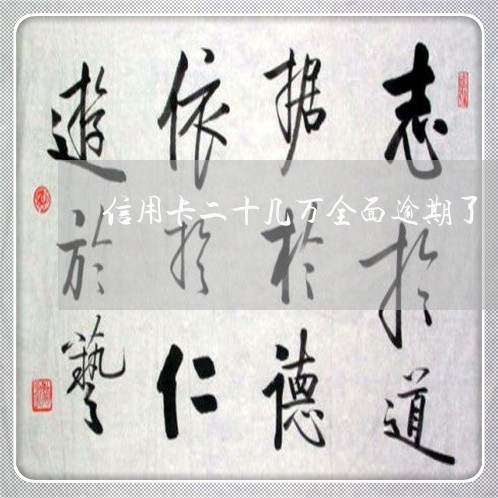 志於道
据於德
依於仁
遊於藝
信用卡二十几万全面逾期了